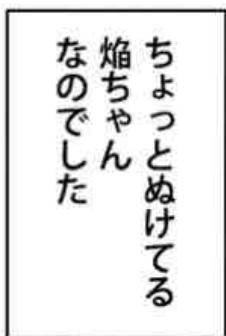 ちょっとぬけてる
焔ちゃん
なのでした